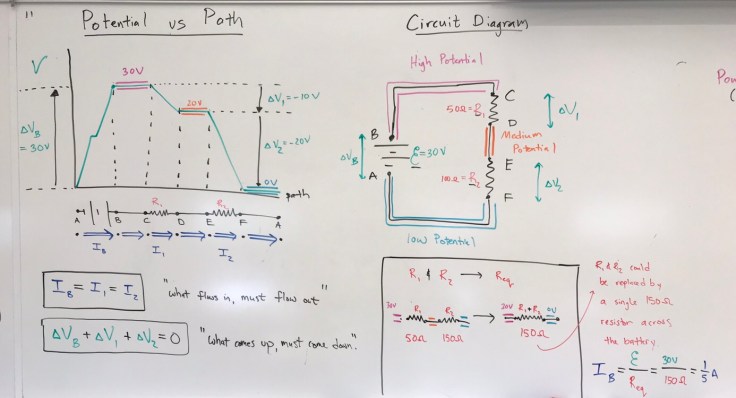 "
Potential vs Path
V
30V
20V
0V
ΔV₁ = -10V
ΔV₂ = -20V
ΔV_B
= 30V
path
R₁ R₂
A B C D E F A
I_B I₁ I₂
I_B = I₁ = I₂
"what flows in, must flow out"
ΔV_B + ΔV₁ + ΔV₂ = 0
"what comes up, must come down."
Circuit Diagram
High Potential
C
50Ω = R₁
ΔV₁
D
Medium
Potential
B
ΔV_B
ε = 30V
A
E
100Ω = R₂
ΔV₂
F
low Potential
R₁ & R₂ → R_eq
30V R₁ R₂ → 20V R₁+R₂ 0V
50Ω 150Ω 150Ω
R₁ & R₂ could
be replaced by
a single 150Ω
resistor across
the battery
I_B = ε/R_eq = 30V/150Ω = 1/5 A
Pow
(